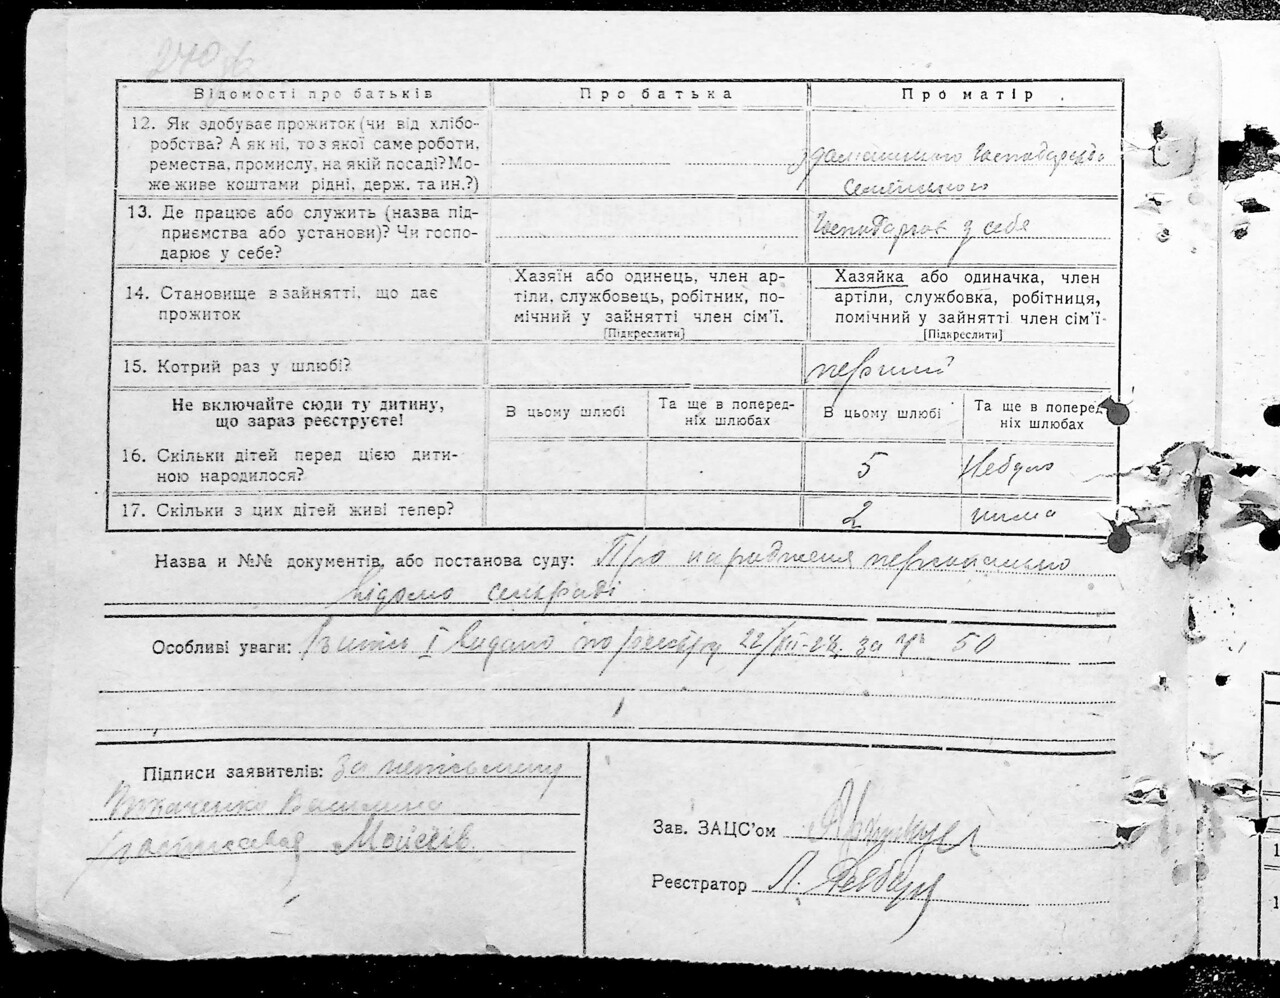 270
Відомості про батьків
Про батька
Про матір
12. Як здобуває прожиток (чи від хлібо-
робства? А як ні, то з якої саме роботи,
ремества, промислу, на якій посаді? Мо-
же живе коштами рідні, держ. та ин.?)
домашнього господарства
13. Де працює або служить (назва під-
приємства або установи)? Чи госпо-
дарює у себе?
у себе
14. Становище в зайнятті, що дає
прожиток
Хазяїн або одинець, член ар-
тіли, службовець, робітник, по-
мічний у зайнятті член сім'ї.
[Підкреслити]
Хазяйка або одиначка, член
артіли, службовка, робітниця,
помічний у зайнятті член сім'ї-
[Підкреслити]
15. Котрий раз у шлюбі?
перший
Не включайте сюди ту дитину,
що зараз реєструєте!
В цьому шлюбі
Та ще в поперед-
ніх шлюбах
В цьому шлюбі
Та ще в поперед
ніх шлюбах
16. Скільки дітей перед цією дити-
ною народилося?
5
Небуло
17. Скільки з цих дітей живі тепер?
2
нима
Назва и №№ документів, або постанова суду: Про народженя персонально
відомо сельраді
Особливі уваги: Витяг I видано по реєстру за № 50
Підписи заявителів: За неписьмену
Ткаченко
Мойсеів
Зав. ЗАЦС'ом
Реєстратор Л.
1
1